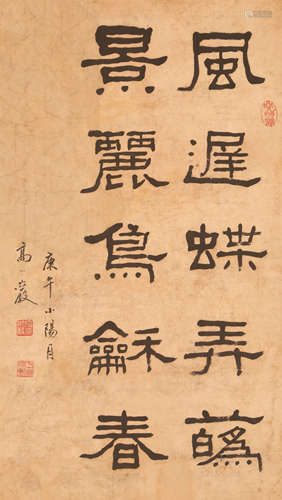 風遲蝶弄蘤
景麗鳥龢春
庚午小陽月
高嵡